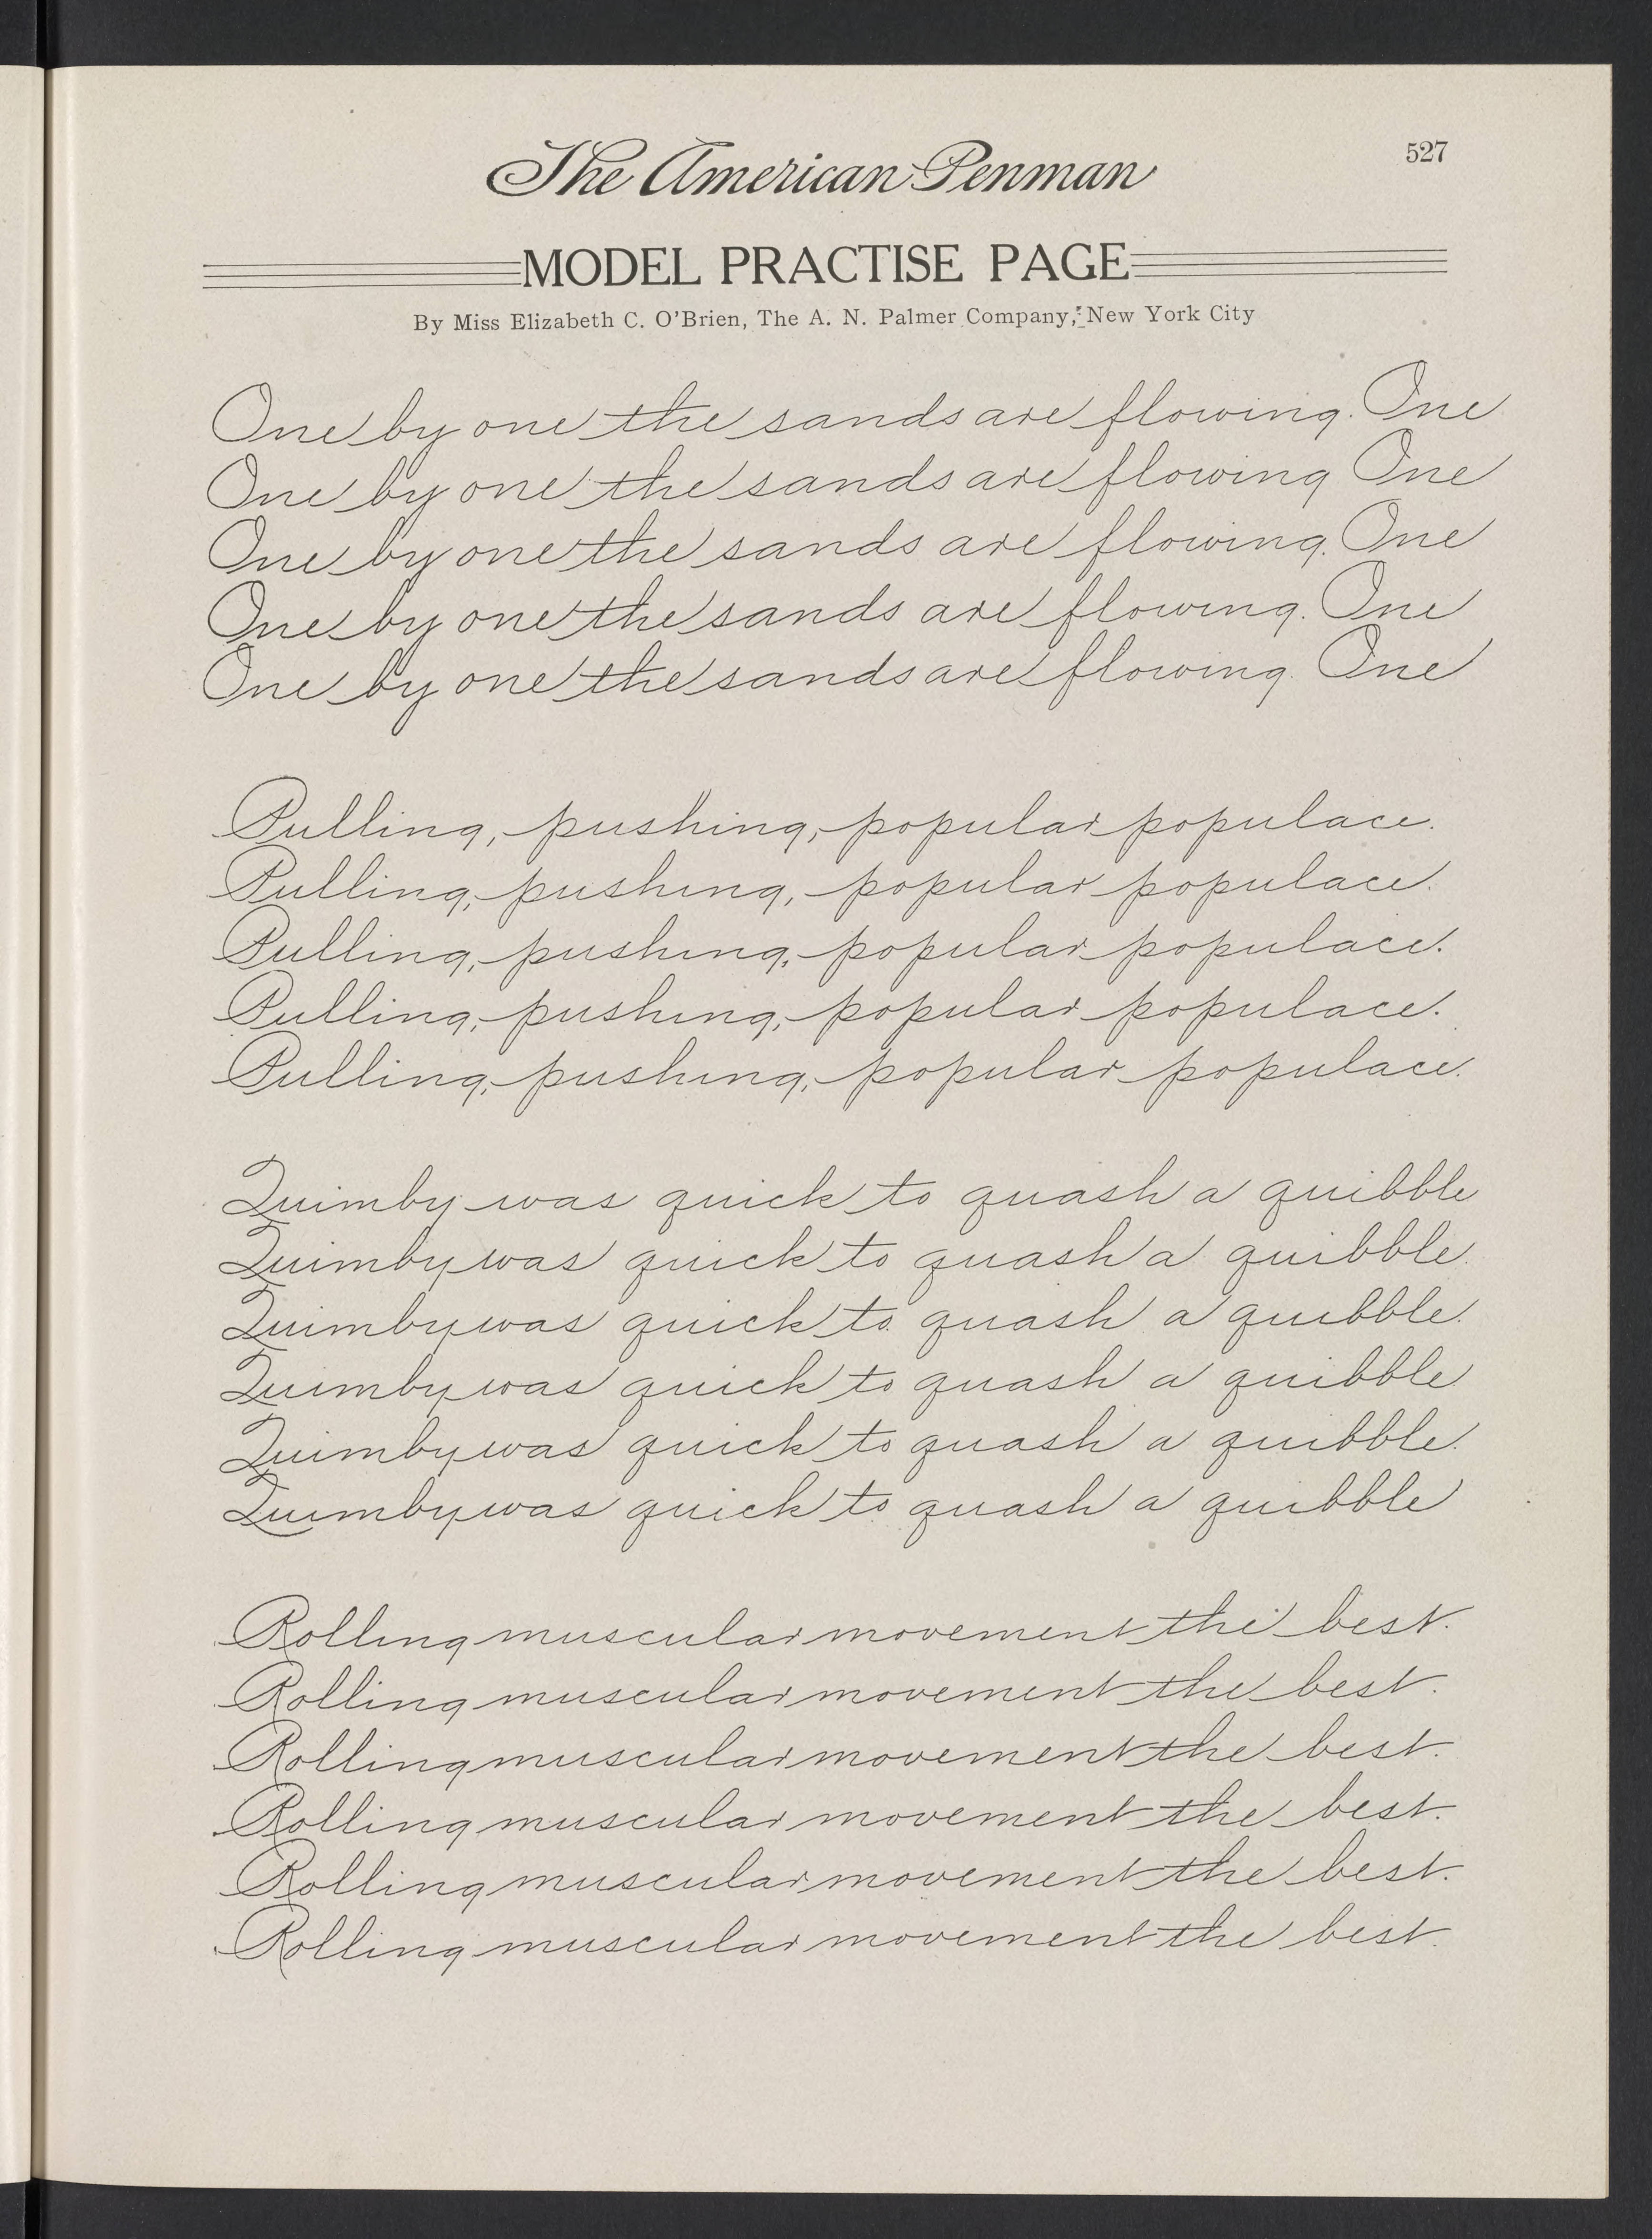 The American Penman
527
MODEL PRACTISE PAGE
By Miss Elizabeth C. O'Brien, The A. N. Palmer Company, New York City
One by one the sands are flowing. One
One by one the sands are flowing One
One by one the sands are flowing. One
One by one the sands are flowing. One
One by one the sands are flowing. One
Pulling, pushing, popular populace.
Pulling, pushing, popular populace.
Pulling, pushing, popular populace.
Pulling, pushing, popular populace.
Pulling, pushing, popular populace.
Quimby was quick to quash a quibble
Quimby was quick to quash a quibble.
Quimby was quick to quash a quibble.
Quimby was quick to quash a quibble.
Quimby was quick to quash a quibble.
Quimby was quick to quash a quibble
Rolling muscular movement the best.
Rolling muscular movement the best.
Rolling muscular movement the best.
Rolling muscular movement the best.
Rolling muscular movement the best.
Rolling muscular movement the best.